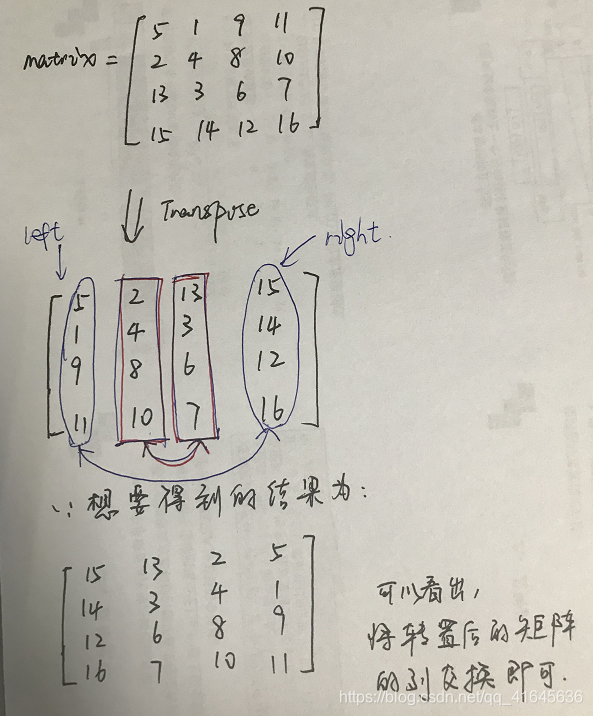 matrix =
5 1 9 11
2 4 8 10
13 3 6 7
15 14 12 16
Transpose
left
right.
5 2 13 15
1 4 3 14
9 8 6 12
11 10 7 16
∵想要得到的结果为:
15 13 2 5
14 3 4 1
12 6 8 9
16 7 10 11
可以看出,
将转置后的矩阵
的列交换即可.
https://blog.csdn.net/qq_41645636